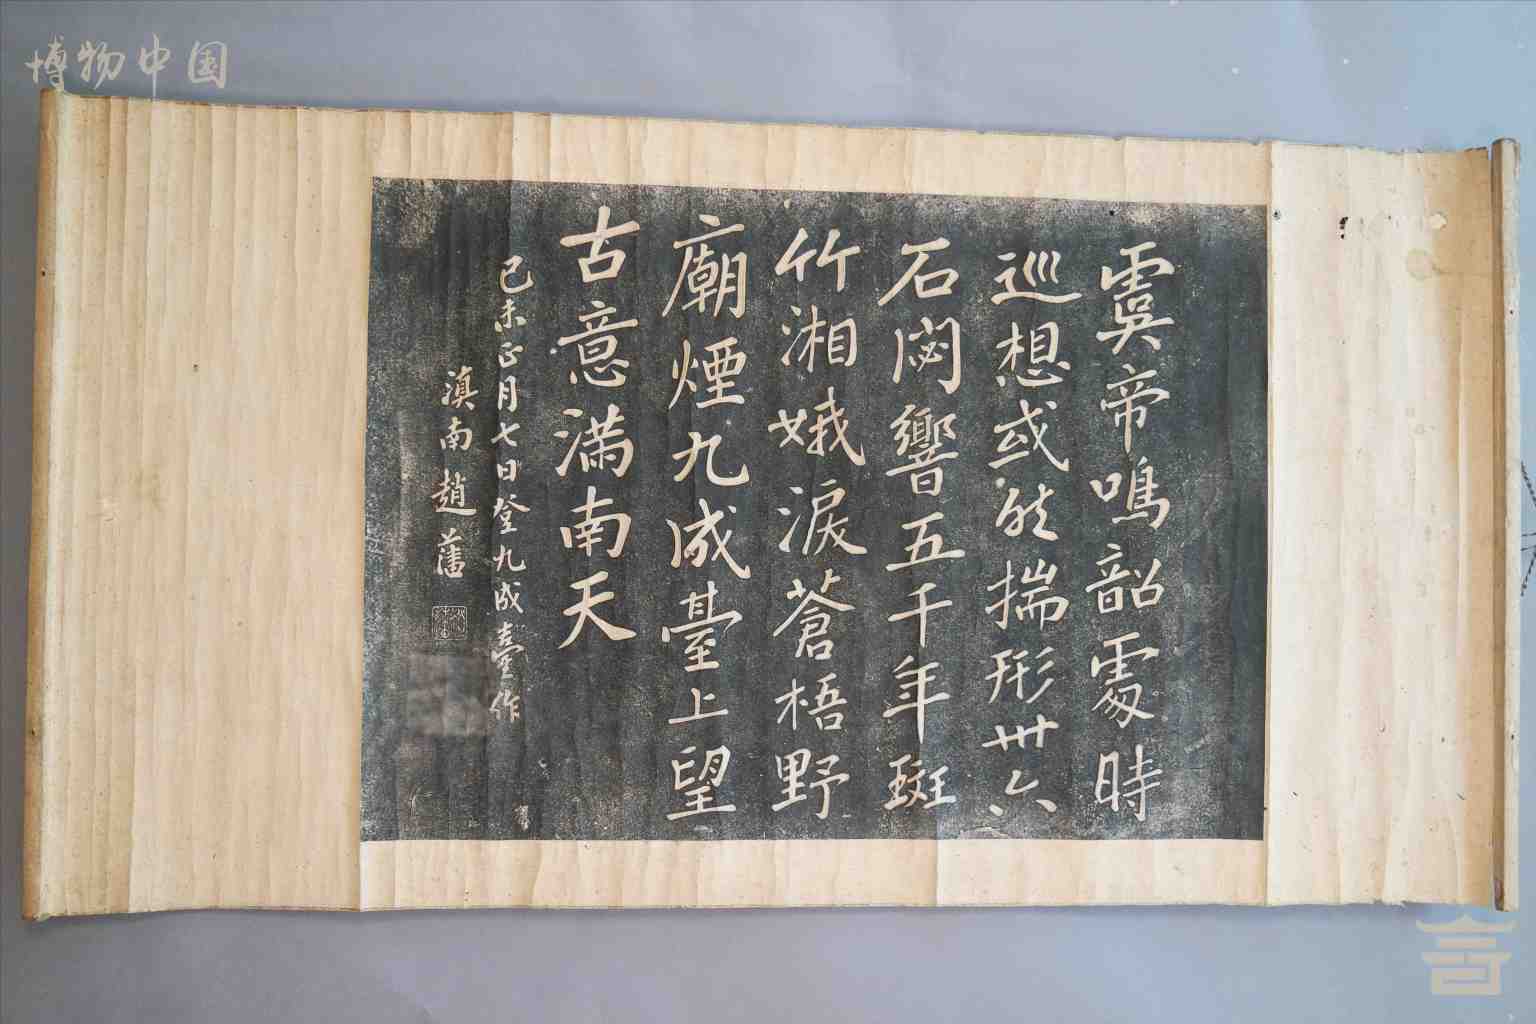 博物中国
虞帝鳴韶處時
巡想或然揣形卅六
石閟響五千年斑
竹湘娥淚蒼梧野
廟煙九成臺上望
古意滿南天
己未正月七日登九成臺作
滇南趙藩